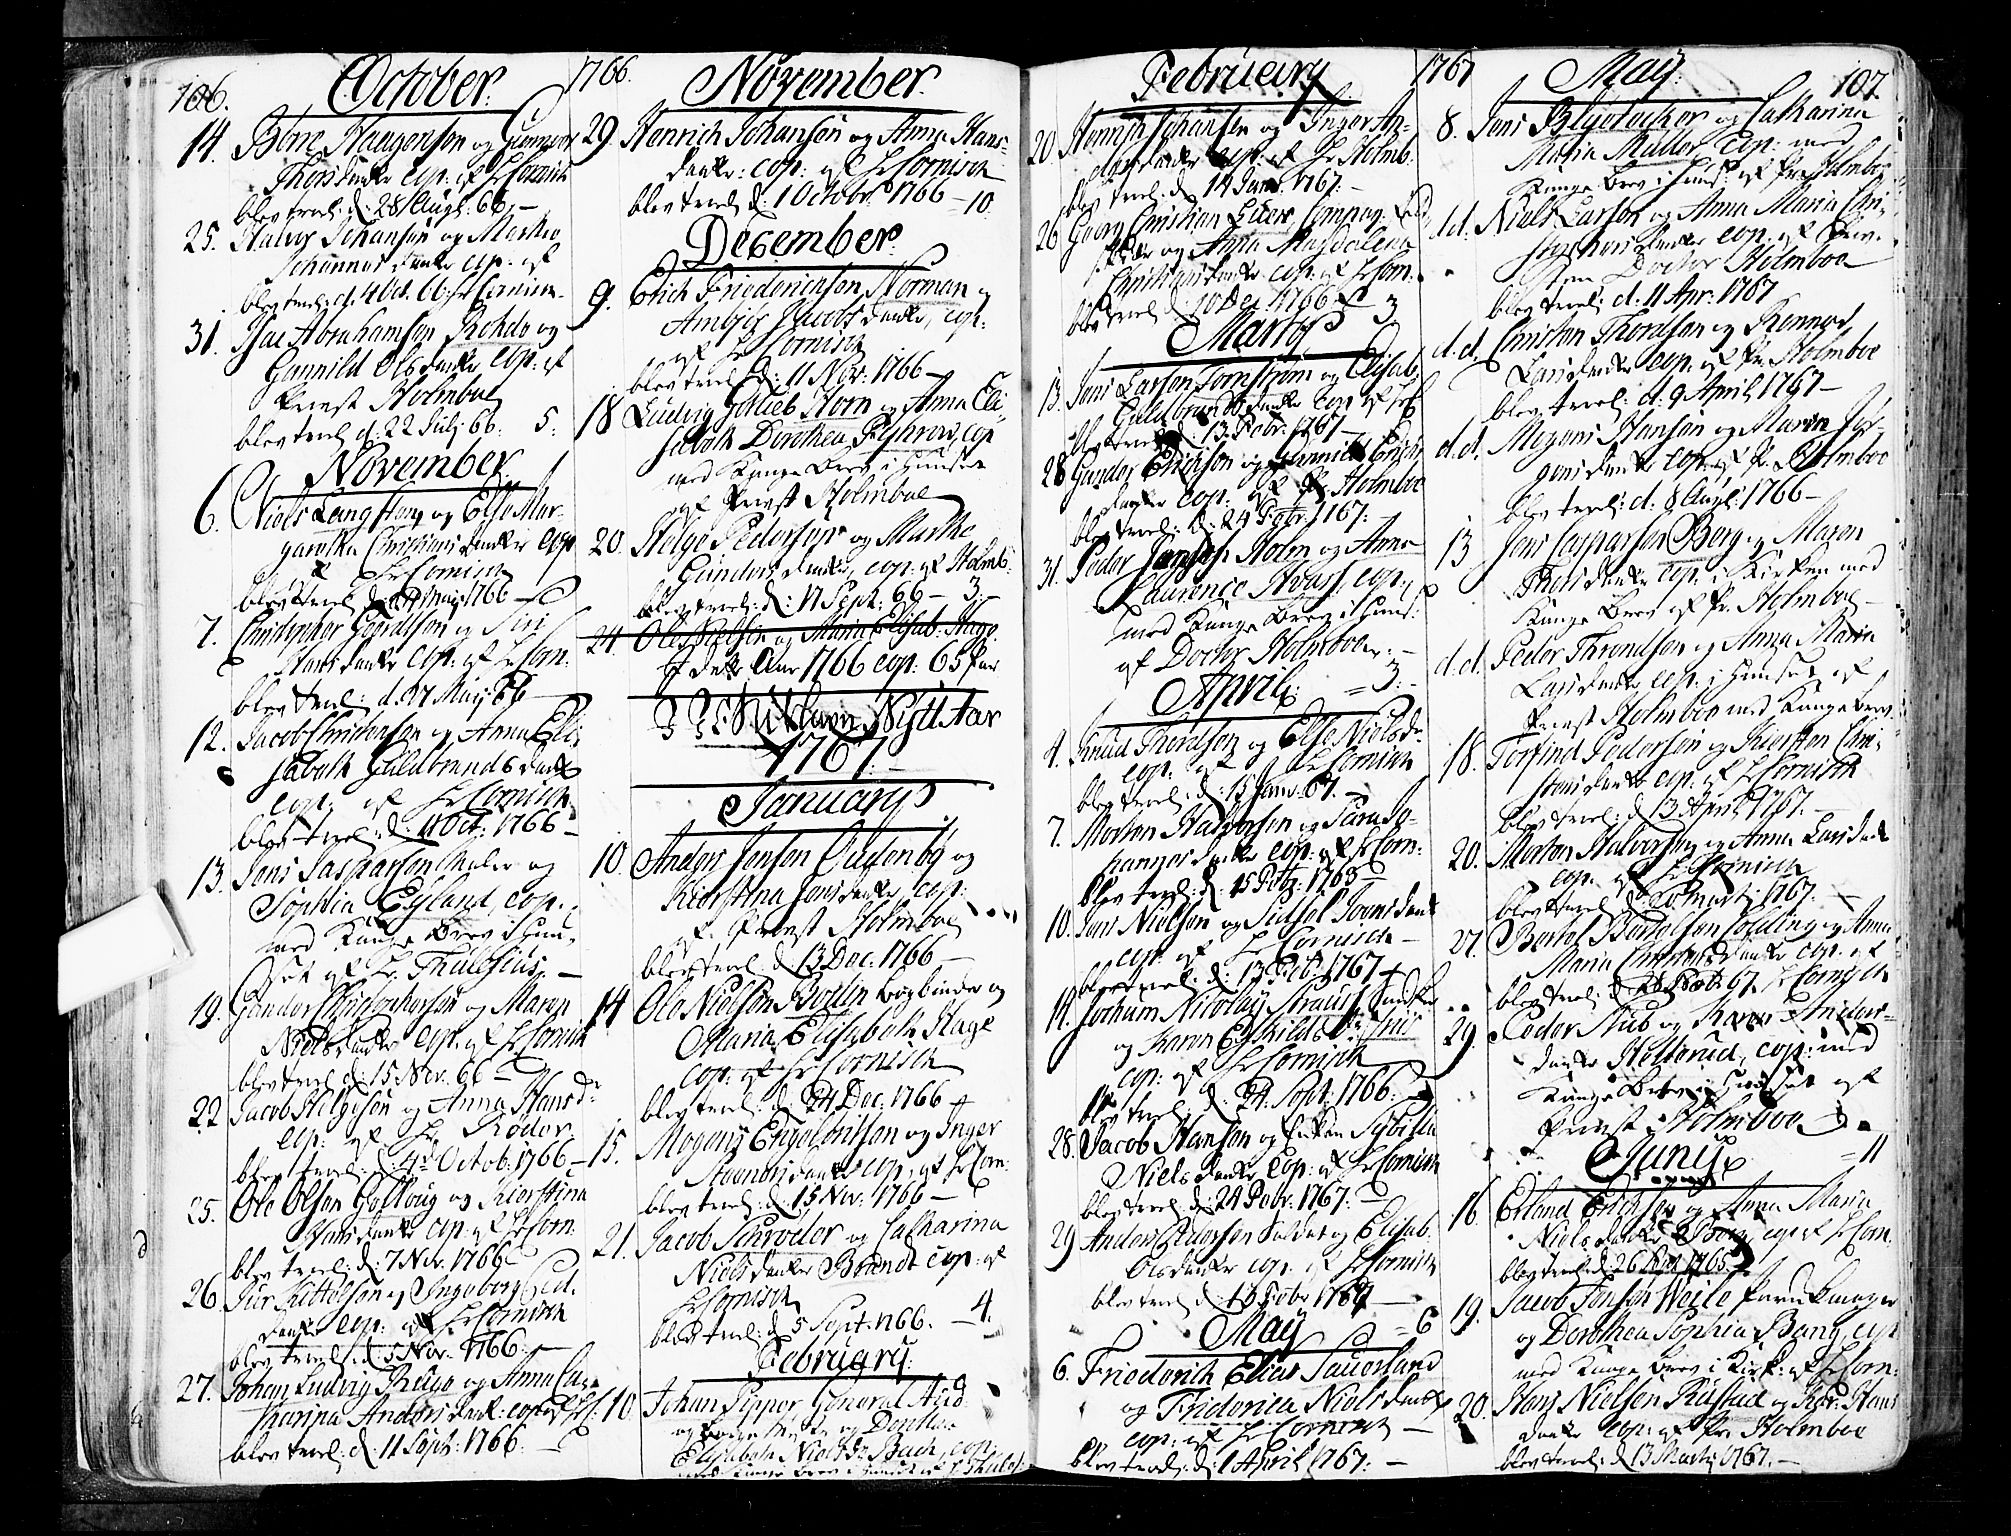 106.
October.
1766.
14. Børre Haugensøn og Gunnor
Thorsdaatter cop: af Hr Cornisch
blev trol: d: 28 Augl: 66. —
25. Halvor Johansøn og Marthe
Johannes daatter cop: af
blev trol: d. 4 Oct. 66. Hr Cornisch.
31. Isac Abrahamsøn Rohde og
Gunnild Olsdaatter cop: af
Præst Holmboe
blev trol: d: 22 Julj 66. 5.
November.
6. Niels Langsteng og Else Mar-
garetha Christiansdaatter cop
af Hr Cornisch
blev trol: d: Maij 1766 —
7. Christopher Goordtsøn og Siri
Hansdaatter cop: af Hr Corn:
blev trol: d. 17 Maij 66 —
12. Jacob Christensøn og Anna Elis
sabeth Guldbrands daatter
cop: af Hr Cornisch
blev trol: d: 11 Oct: 1766 —
13. Jens Jasparsøn Maler og
Sophia Eyland, cop.
med Konge Brev i Huu-
set af Hr. Thulesius. —
19. Gunder Christophersøn og Maren
Nielsdaatter cop. af Hr Cornisch
blev trol d: 15 Nov. 66 —
22 Jacob Helgesøn og Anna Hansd:
cop: af Hr Røder
blev trol: d: 4de Octob: 1766 —
25. Ole Olsen Golloug og Kierstina
Hansdaatter cop. af Hr Corn:
blev trol: d: 7 Nov. 1766
26. Siur Kittelsøn og Ingeborg Ged.
daatter cop: af Hr Cornisch
blev trol: d: 5 Nov. 1766. —
27. Johan Ludvig Ruge og Anna Ca-
tharina Anders daat: cop af Hr C:
blev trol: d: 11 Sept: 1766. —
November.
29. Henrich Johansøn og Anna Hans-
daatter: cop: af Hr Cornisch
blev trol d: 1 Octobr. 1766 — 10.
December.
9. Erich Friederichsøn Norman og
Ambjør Jacobsdaatter, cop:
af Hr Cornisch
blev trol: d: 11 Nov: 1766 —
18 Ludvig Gotlieb Horn og Anna Eli-
sabeth Dorothea, cop
med Konge Brev i Huuset
af Præst Holmboe
20. Helge Pedersøn og Marthe
Gundersdaatter, cop: af Holmb:
blev trol: d: 17 Sept: 66 — 3. —
24. Ole Nielsen og Maria Elisab: Hage
I dette Aar 1766 cop: 65 Par
Nytt Aar
1767.
January
10. Anders Jensen Oudenby og
Kierstina Jensdaatter cop:
af Præst Holmboe
blev trol d: 13 Dec: 1766 —
14 Ole Nielsøn Bodin bogbinder og
Maria Elisabeth Hage
cop: af Hr Cornisch
blev trol: d: 24 Dec: 1766
15. Mogens Engebritsøn og Inger
daatter cop: af Hr Corn:
blev trol: d: 15 Nov. 1766 —
21. Jacob Schrøder og Catharina
Nielsdaatter Brandt cop: af
Hr Cornisch
blev trol: d 5 Sept: 1766. — 4.
February.
10. Johan Pipper General Aud-
og Dorthea
Elisabeth Nielsdr Bach, cop
med Konge Brev i Huuset af Hr Thules:
February
1767
20 Henrich Johansen og Inger An-
dersdaatter cop: af Hr Holmb.
blev trol: d. 14 Janr. 1767. —
26 Georg Christian Compag.
og Anna Magdalena
Christiansdaatter cop: af Hr Corn:
blev trol d: 10 Dec 1766 3
Marty
13. Jens Larsen Tornstrøm og Elisab.
Guldbrandsdaatter cop af Hr C
blev trol d: 13 Febr. 1767 —
28 Gunder Erichsøn og Gunnild Erichs
daatter cop. af Pr Holmboe
blev trol: d: 24 Febr. 1767: —
31. Peder Jensen Holm og Anna
Laurence cop:
med Konge Brev i Huus:
af Doctor Holmboe. —
April. = 3: —
4. Knud Thordsøn og Else Nielsdr
cop: af Hr Cornisch
blev trol: d: 15 Janr. 67. —
7. Morten Halvorsen og Sara Jo-
hannesdaatter cop: af Hr Corn:
blev trol: d: 15 Feb: 1763
10. Jens Nielsøn og Sidsel Joensdaatt
cop: af Hr Cornisch —
blev trol: d: 13 Feb: 1767
14. Jochum Nicolaij Straus
og Karen Eskilds
cop: af Hr Cornisch
blev trol: d: 24 Sept: 1766.
28. Jacob Hansøn og Enken Sybilla
Nielsdaatter cop: af Hr Cornisch
blev trol: d: 24 Febr. 1767. —
29 Anders Pedersen Soldat og Elisab.
Olsdaatter cop: af Hr Cornisch
blev trol d: 19 Febr 1767 —
May = 6
6. Friederich Elias Sauerland
og Fridericha Nielsdaatter
cop: af Hr Cornisch —
blev trol: d: 1 April 1767: —
May.
107
8. Jens og Catharina
Maria Muller cop: med
Konge Brev i Huus: af Pr. Holmboe
d.d. Niels Larsen og Anna Maria Chri-
stophersdaatter cop: af
Doctor Holmboe
blev trol: d: 11 Apr: 1767
d.d. Christen Thordsøn og Rønnov
Larsdaatter cop: af Pr. Holmboe
blev trol: d: 9 April 1767 —
d.d. Mogens Hansøn og Maren Jør-
gensdaatter cop: af Pr. Holmboe
blev trol: d: 8 Augl: 1766 —
13 Jens Casparsen Berg og Maren
Thorsdaatter cop: i Kirken med
Konge Brev af Pr. Holmboe —
d.d. Peder Throndsøn og Anna Maria
Larsdaatter cop: i Huuset af
Præst Holmboe med Konge Brev.
18. Torfind Pedersøn og Kiersten Chri-
stensdaatter cop: af Hr Cornisch
blev trol: d: 13 April 1767. —
20. Morten Halvorsøn og Anna Larsdaatt
cop. af Hr Cornisch
blev trol d: 20 Martj 1767. —
27. Bertel Bertelsøn Colding og Anna
Maria Christiansdaatter cop: af
blev trol: d: Feb 67. Hr Cornisch
29. Peder Stub og Karen Anders-
daatter Hellerud, cop: med
Konge Brev i Huuset af
Præst Holmboe
= 11
Juny.
16. Erland Erichsen og Anna Maria
Nielsdaatter Borg, cop: af Hr Corn:
blev trol: d: 26 1765
19. Jacob Jensen Weile Paruckmager
og Dorothea Sophia Bang, cop
med Konge Brev i Kirk: af Hr Corn:
20. Hans Nielsen Rustad og Kar: Hans
daatter cop: af Pr Holmboe
blev trol: d 13 Martij 1767. —